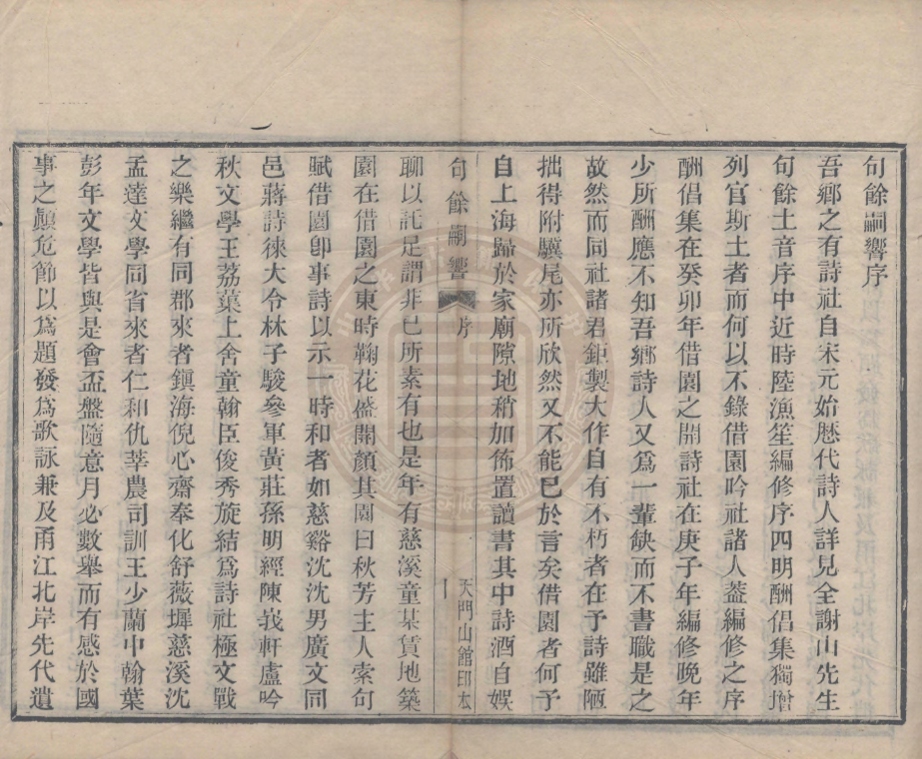 句餘嗣響序
吾鄉之有詩社自宋元始歷代詩人詳見全謝山先生
句餘土音序中近時陸漁笙編修序四明酬倡集獨增
列官斯土者而何以不錄借園吟社諸人葢編修之序
酬倡集在癸卯年借園之開詩社在庚子年編修晚年
少所酬應不知吾鄉詩人又爲一輩缺而不書職是之
故然而同社諸君鉅製大作自有不朽者在予詩雖陋
拙得附驥尾亦所欣然又不能已於言矣借園者何予
自上海歸於家廟隙地稍加佈置讀書其中詩酒自娛
句餘嗣響 序 一 天門山館印本
聊以託足謂非已所素有也是年有慈溪童某賃地築
園在借園之東時鞠花盛開顏其園曰秋芳主人索句
賦借園卽事詩以示一時和者如慈谿沈沈男廣文同
邑蔣詩徠大令林子駿參軍黃莊孫明經陳峩軒盧吟
秋文學王荔葉上舍童翰臣俊秀旋結爲詩社極文戰
之樂繼有同郡來者鎭海倪心齋奉化舒薇墀慈溪沈
孟達文學同省來者仁和仇莘農司訓王少蘭中翰葉
彭年文學皆與是會盃盤隨意月必數舉而有感於國
事之顚危節以爲題發爲歌詠兼及甬江北岸先代遺